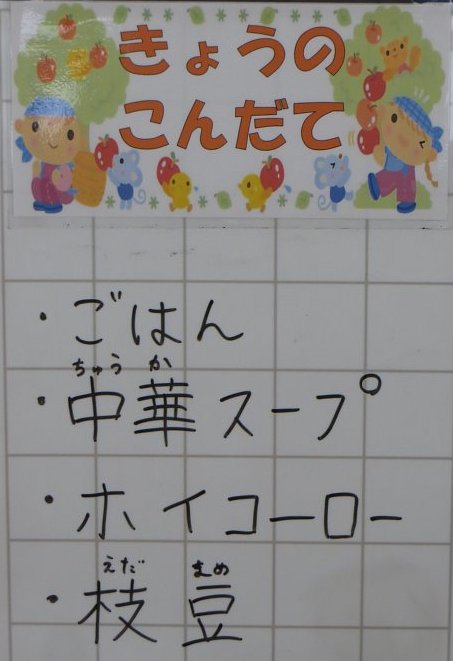 きょうの
こんだて
・ごはん
ちゅう か
・中華スープ
・ホイコーロー
えだ まめ
・枝豆